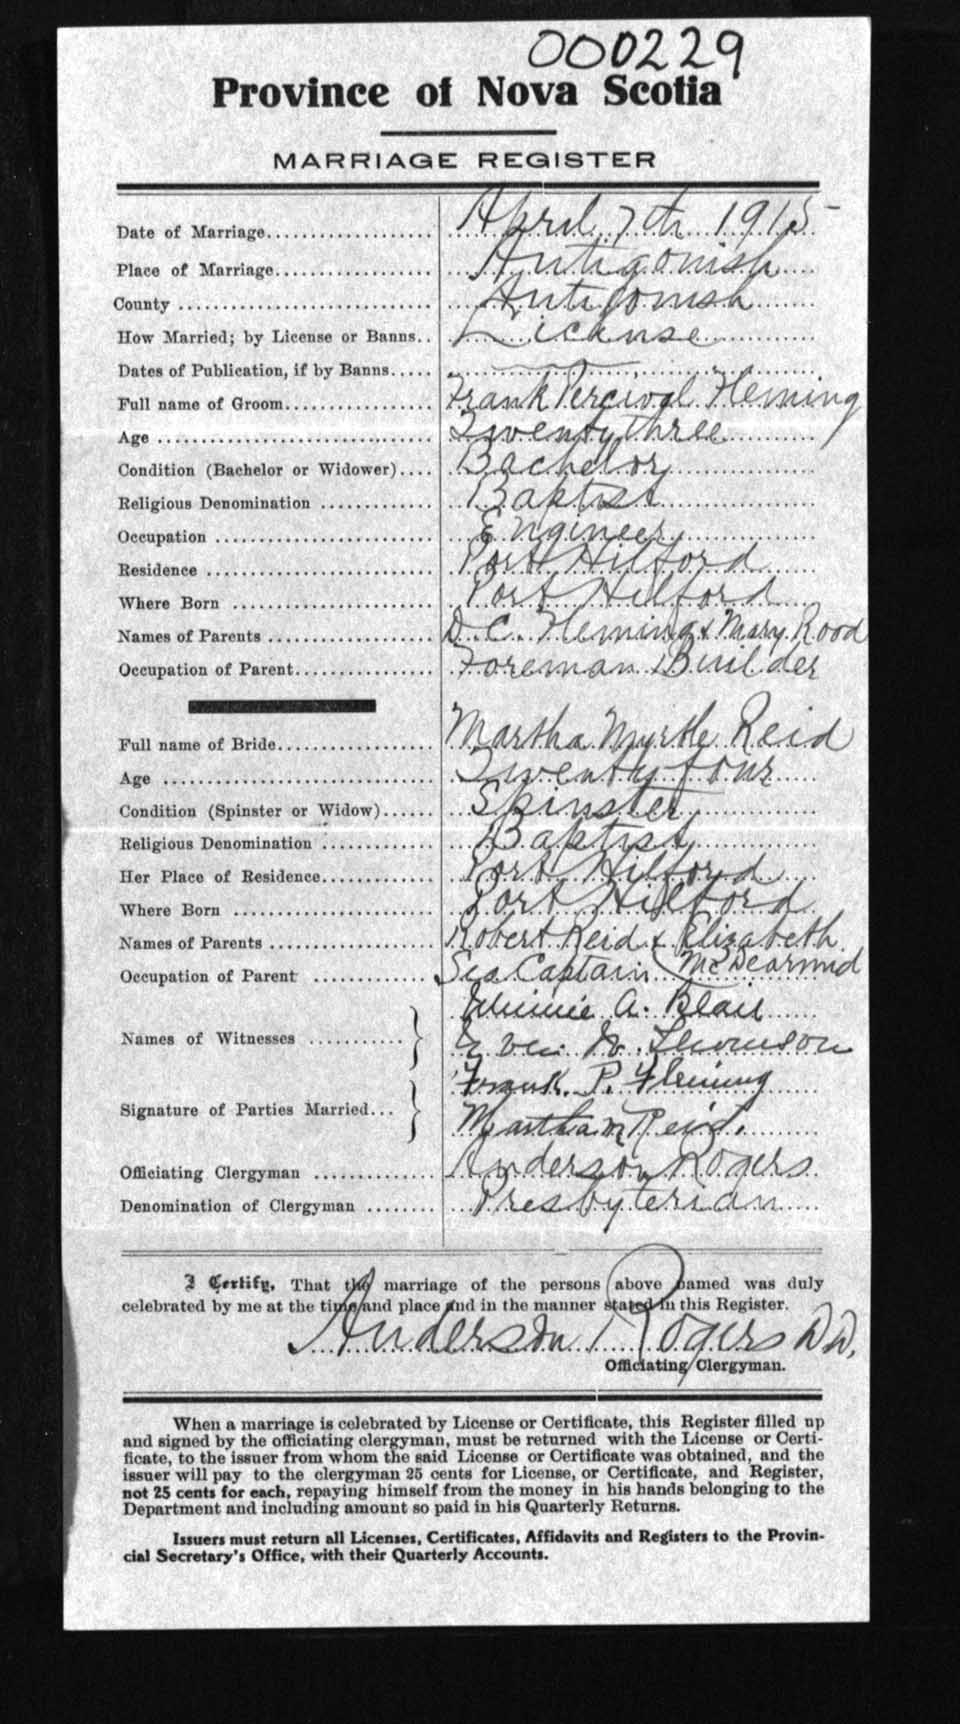 000229
Province of Nova Scotia
MARRIAGE REGISTER
Date of Marriage................... April 7th 1915
Place of Marriage................... Antigonish
County ............................. Antigonish
How Married; by License or Banns.. License
Dates of Publication, if by Banns.....
Full name of Groom................. Frank Percival Fleming
Age ................................ Twenty three
Condition (Bachelor or Widower).... Bachelor
Religious Denomination ............. Baptist
Occupation ......................... Engineer
Residence .......................... Port Hilford
Where Born ......................... Port Hilford
Names of Parents ................... D. C. Fleming & Mary Rood
Occupation of Parent................ Foreman Builder
Full name of Bride.................. Martha Myrtle Reid
Age ................................ Twenty four
Condition (Spinster or Widow)...... Spinster
Religious Denomination ............. Baptist
Her Place of Residence............. Port Hilford
Where Born ......................... Port Hilford
Names of Parents ................... Robert Reid & Elizabeth
Occupation of Parent ............... Sea Captain McDearmid
Names of Witnesses ........... } Winnie A. Blair
W. Thomson
Signature of Parties Married... } Frank. P. Fleming
Martha M Reid.
Officiating Clergyman .............. Anderson Rogers
Denomination of Clergyman ........ Presbyterian
I Certify, That the marriage of the persons above named was duly
celebrated by me at the time and place and in the manner stated in this Register.
Anderson Rogers D.D.
Officiating Clergyman.
When a marriage is celebrated by License or Certificate, this Register filled up
and signed by the officiating clergyman, must be returned with the License or Certi-
ficate, to the issuer from whom the said License or Certificate was obtained, and the
issuer will pay to the clergyman 25 cents for License, or Certificate, and Register,
not 25 cents for each, repaying himself from the money in his hands belonging to the
Department and including amount so paid in his Quarterly Returns.
Issuers must return all Licenses, Certificates, Affidavits and Registers to the Provin-
cial Secretary's Office, with their Quarterly Accounts.